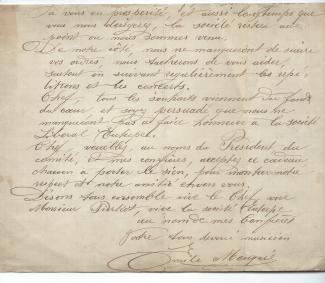 à vous en prospérité, et aussi longtemps que
vous nous dirigerez, la société restera au
point où nous sommes venu.
De notre côté, nous ne manqueront de suivre
vos ordres, nous tacherons de vous aider,
surtout en suivant regulièrement les repe-
titions et les concerts.
Chef, tous les souhaits viennent du fond
du cœur et soyez persuadé que nous ne
manqueront pas at faire honneur a la société
Liberal Euterpe.
Chef, veuillez, au noms du President du
comité, et mes confrères, acceptez ce cadeau
chacun a porter le sien, pour montrer notre
respect et notre amitié envers vous,
Disons tous ensemble vive le Chef
Monsieur vive la société Euterpe
au nom de mes Confrères
Votre tous devoué musicien
Emile